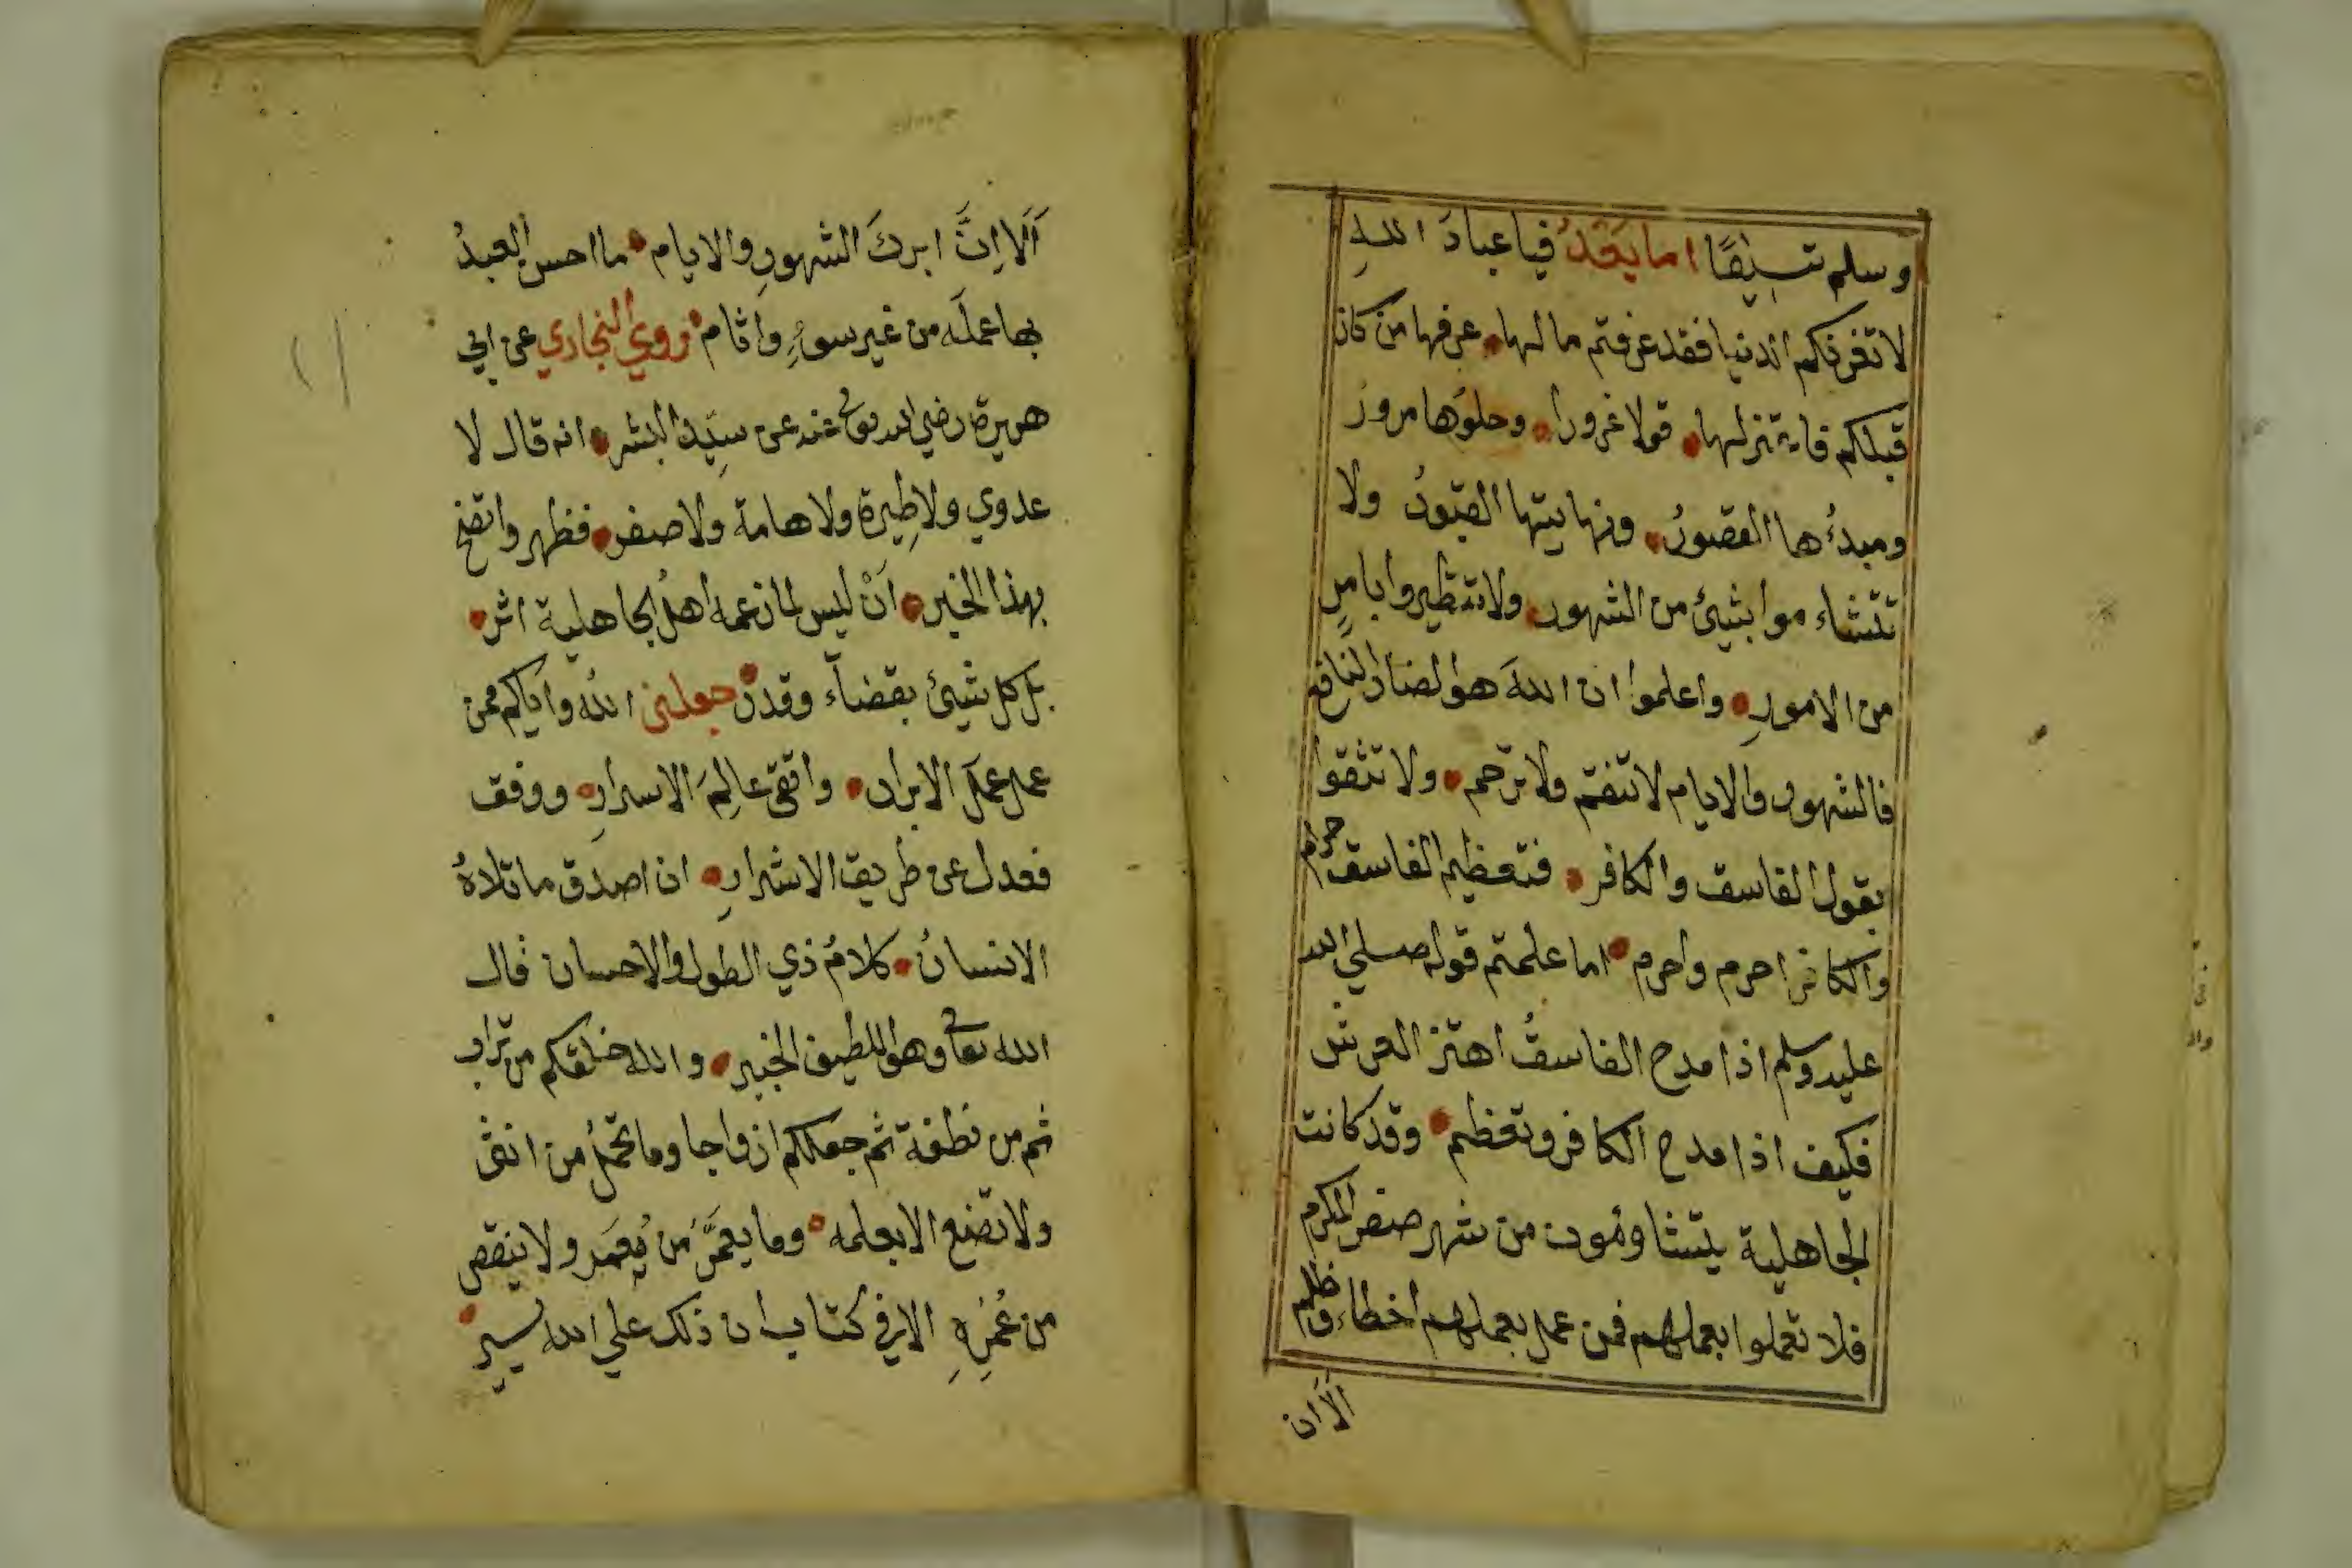 وسلم تسليمًا اما بعدُ فيا عبادَ اللهِ
لا تغرنكم الدنيا فقد عرفتم مالها عرفها من كان
قبلكم فاية نزلها قولا غرورا وحلوُها مرور
ومبدءُها القصورُ ونهايتها القبورُ ولا
تتشاءموا بشيئ من الشهور ولا تتطيروا بامرٍ
من الامورِ واعلموا ان اللهَ هو الضار النافع
فالشهور والايام لا تنفتم ولا ترحم ولا تثقوا
بقول الفاسق والكافر فتعظيم الفاسق حرام
والكافر احرم واحرم اما علمتم قوله صلي الله
عليه وسلم اذا مدح الفاسقُ اهتز العرش
فكيف اذا مدح الكافر وتعظيم وقد كانت
الجاهلية يتشاومُون من شهر صفر المكرم
فلا تعملوا بعملهم فمن عمل بعملهم اخطاء وظلم
اَلَا ان
اَلَا اِنَّ ابركَ الشهورِ والايام ما احسن العبدُ
بها عملَه من غير سوءٍ واثام روي البخاري عن ابي
هريرة رضي الله تعالى عنه عن سيّد البشر انه قال لا
عدوي ولا طِيرة ولا هامة ولا صفر فظهر واتضح
بهذا الخبر اَنْ ليس لما زعمه اهلُ الجاهلية اثر
بل كل شيئ بقضاء وقدر جعلني الله واياكم ممن
عمل عملَ الابرار واتقى عالِمَ الاسرارِ ووفق
فعدل عن طريق الاشرارِ ان اصدق ما تلاهُ
الانسانُ كلامُ ذي الطول والاحسان قال
الله تعالى وهو اللطيف الخبير والله خلقكم من تراب
ثم من نطفة ثم جعلكم ازواجا وما تحملُ من انثى
ولا تضع الا بعلمه وما يعمَّرُ من مُعَمَر ولا ينقص
من عُمُرِهِ الا في كتاب ان ذلك علي الله يسير